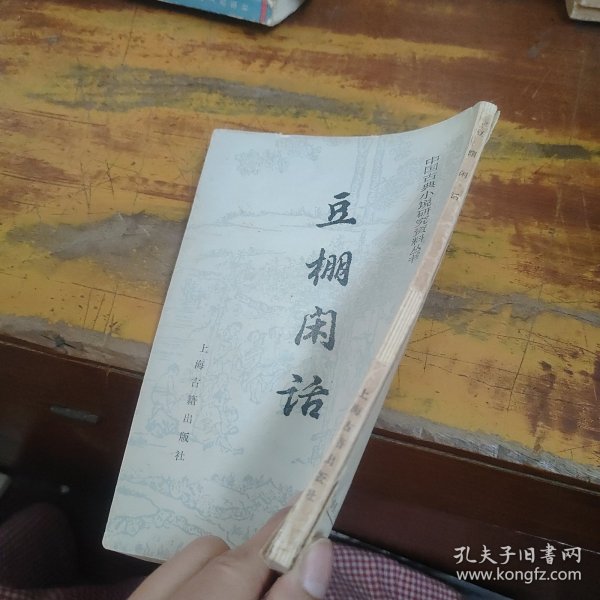 中国古典小说研究资料丛书
豆棚闲话
上海古籍出版社
豆棚闲话
上海古籍出版社
孔夫子旧书网
www.kongfz.com